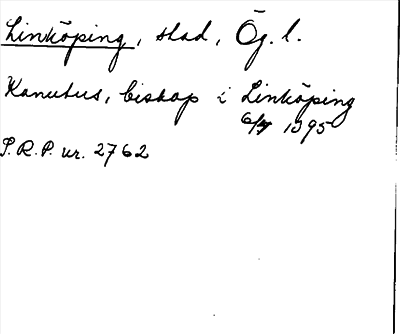 Linköping, stad, Ög. l.
Kanutus, biskop i Linköping
6/7 1395
S.R.P. nr. 2762